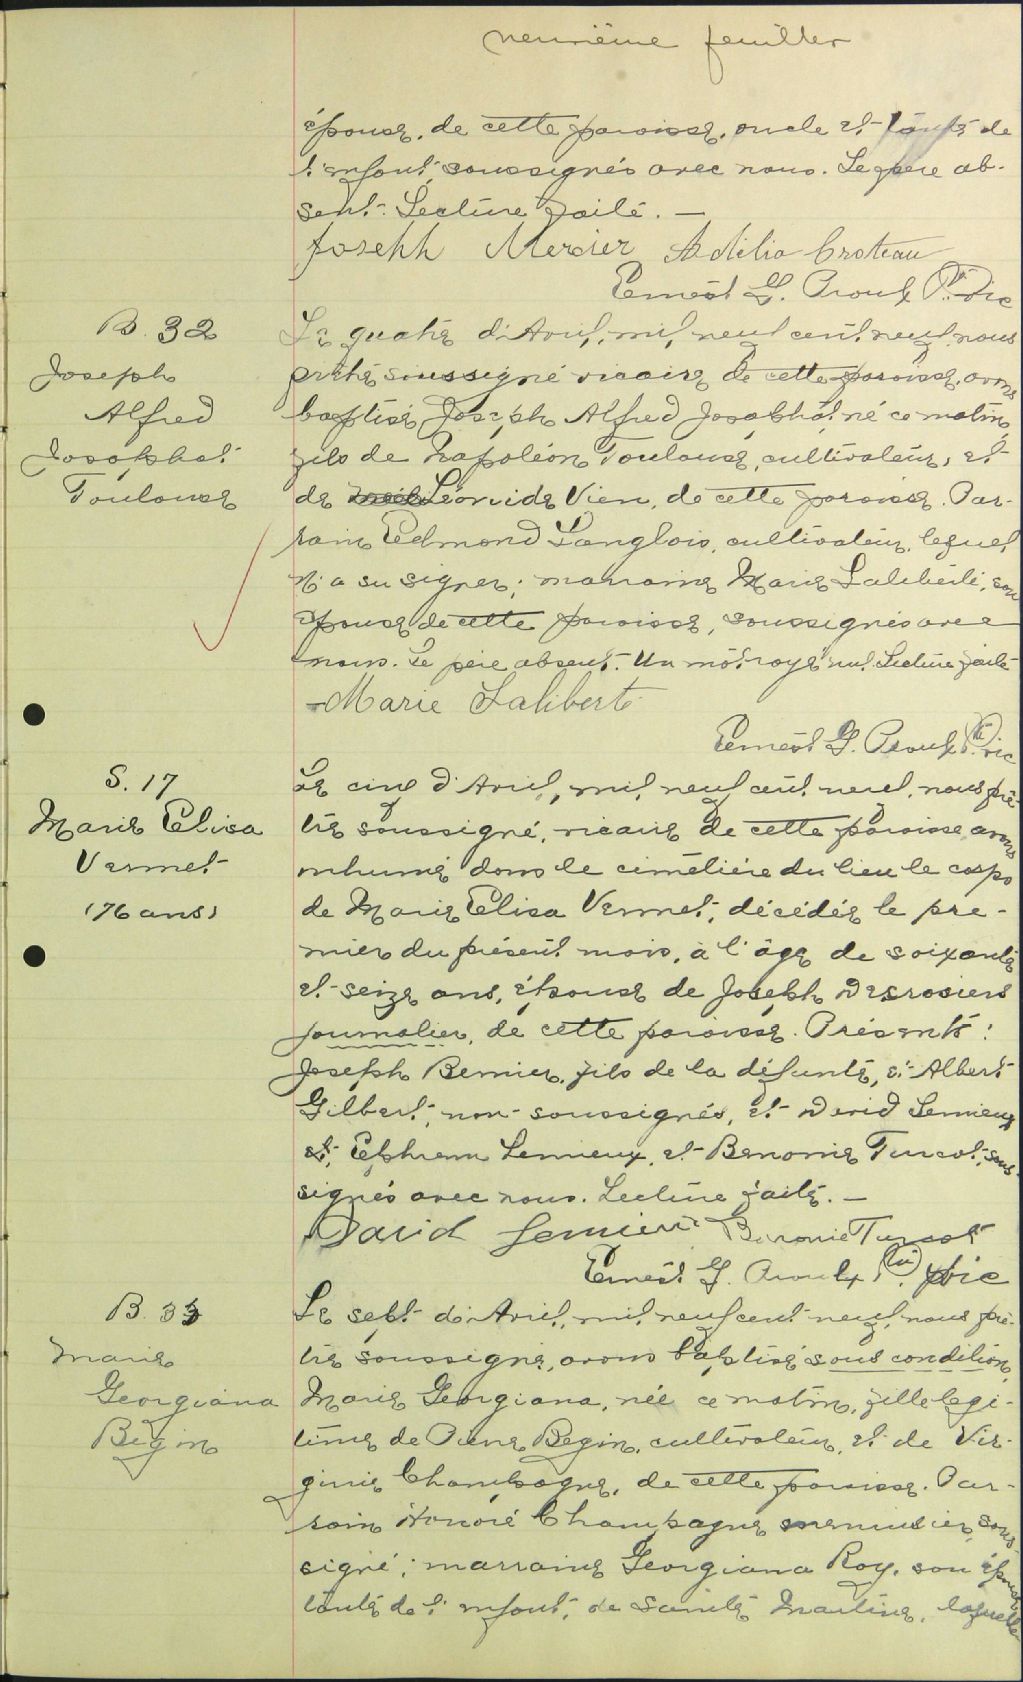 neuvième feuillet
épouse, de cette paroisse, oncle et tante de
l'enfant, soussignés avec nous. Le père ab-
sent. Lecture faite. —
Joseph Mercier Adélia Croteau
Ernest G. Proulx Ptre vic
B. 32
Joseph
Alfred
Josaphat
Toulouse
Le quatre d'Avril, mil neuf cent neuf, nous
prêtre soussigné vicaire de cette paroisse, avons
baptisé Joseph Alfred Josaphat, né ce matin,
fils de Napoléon Toulouse, cultivateur, et
de Léonide Vien, de cette paroisse. Par-
rain Edmond Langlois, cultivateur, lequel
n'a su signer; marraine Marie Laliberté, son
épouse de cette paroisse, soussignés avec
nous. Le père absent. Un mot rayé nul. Lecture faite
Marie Laliberté
Ernest G. Proulx Ptre vic
S. 17
Marie Elisa
Vermet
(76 ans)
Le cinq d'Avril, mil neuf cent neuf, nous prê-
tre soussigné, vicaire de cette paroisse, avons
inhumé dans le cimetière du lieu le corps
de Marie Elisa Vermet, décédée le pre-
mier du présent mois, à l'âge de soixante
et seize ans, épouse de Joseph Desrosiers
journalier, de cette paroisse. Présents:
Joseph Bernier, fils de la défunte, et Albert
Gilbert, non-soussignés, et David Lemieux
et, Ephrem Lemieux, et Benonie Turcot, sous-
signés avec nous. Lecture faite. —
David Lemieux Benonie Turcot
Ernest G. Proulx Ptre vic
B. 33
Marie
Georgiana
Bégin
Le sept d'Avril, mil neuf cent neuf, nous prê-
tre soussigné, avons baptisé sous condition,
Marie Georgiana, née ce matin, fille légi-
time de Pierre Begin, cultivateur, et de Vir-
ginie Champagne, de cette paroisse. Par-
rain Honoré Champagne menuisier, sous-
signé; marraine Georgiana Roy, son épouse
tante de l'enfant, de Sainte Martine, laquelle